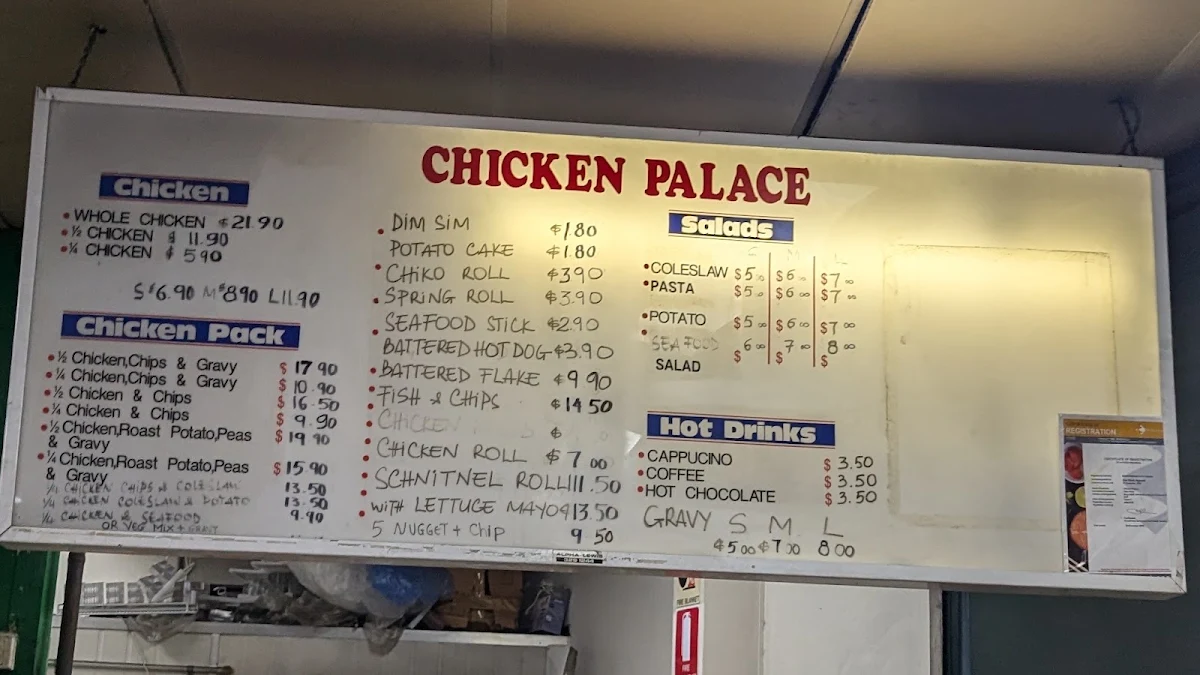 CHICKEN PALACE
Chicken
• WHOLE CHICKEN $21.90
• ½ CHICKEN $ 11.90
• ¼ CHICKEN $ 5 90
S $6.90 M $8 90 L 11.90
Chicken Pack
• ½ Chicken,Chips & Gravy $ 17 90
• ¼ Chicken,Chips & Gravy $ 10.90
• ½ Chicken & Chips $ 16.50
• ¼ Chicken & Chips $ 9.90
• ½ Chicken,Roast Potato,Peas $ 19 90
& Gravy
• ¼ Chicken,Roast Potato,Peas $ 15 90
& Gravy
¼ CHICKEN CHIPS & COLESLAW 13.50
¼ CHICKEN COLESLAW & POTATO 13.50
¼ CHICKEN & SEAFOOD 9.90
OR VEG MIX + GRAVY
• DIM SIM $1.80
POTATO CAKE $1.80
• CHIKO ROLL $3.90
• SPRING ROLL $3.90
• SEAFOOD STICK $2.90
BATTERED HOT DOG $3.90
• BATTERED FLAKE $9 90
• FISH & CHIPS $14 50
• CHICKEN $
• CHICKEN ROLL $7 00
• SCHNITNEL ROLL 11.50
• WITH LETTUCE MAYO $13.50
5 NUGGET + CHIP 9 50
Salads
S M L
• COLESLAW $5 00 $6 00 $7 00
• PASTA $5 00 $6 00 $7 00
• POTATO $5 00 $6 00 $7 00
• SEAFOOD $6 00 $7 00 $8 00
SALAD
Hot Drinks
• CAPPUCINO $ 3.50
• COFFEE $ 3.50
• HOT CHOCOLATE $ 3.50
GRAVY S M L
$5.00 $7.00 8 00
REGISTRATION
CERTIFICATE OF REGISTRATION
ALPHA LEWIS
FIRE BLANKET
FIRE